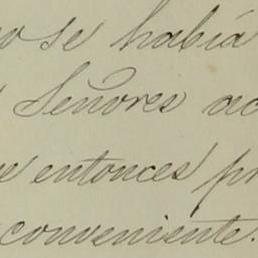 no se había
Señores ac
e entonces pr
conveniente.